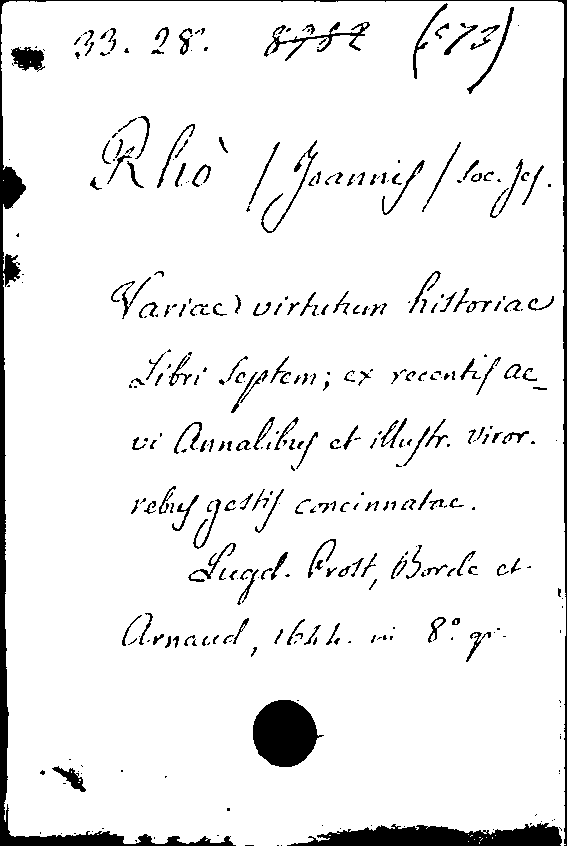 33. 28. 8782 (573)
Rhò / Joannis / Soc. Jes.
Variae virtutum historiae
Libri septem; ex recentis ae_
vi Annalibus et illustr. viror.
rebus gestis concinnatae.
Lugd. Prost, Borde et
Arnaud, 1644. in 8° gr.